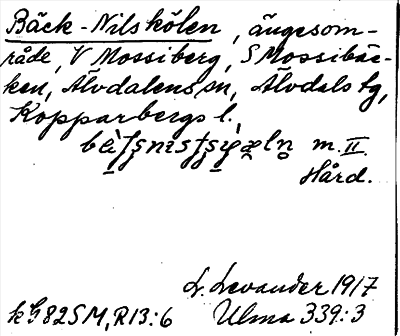 Bäck-Nilskölen, ängesom-
råde, V Mossiberg, S Mossibäc-
ken, Älvdalens sn, Älvdals tg,
Kopparbergs l.
m. II.
Hård.
L. Levander 1917
kG82SM, R13:6 Ulma 339:3